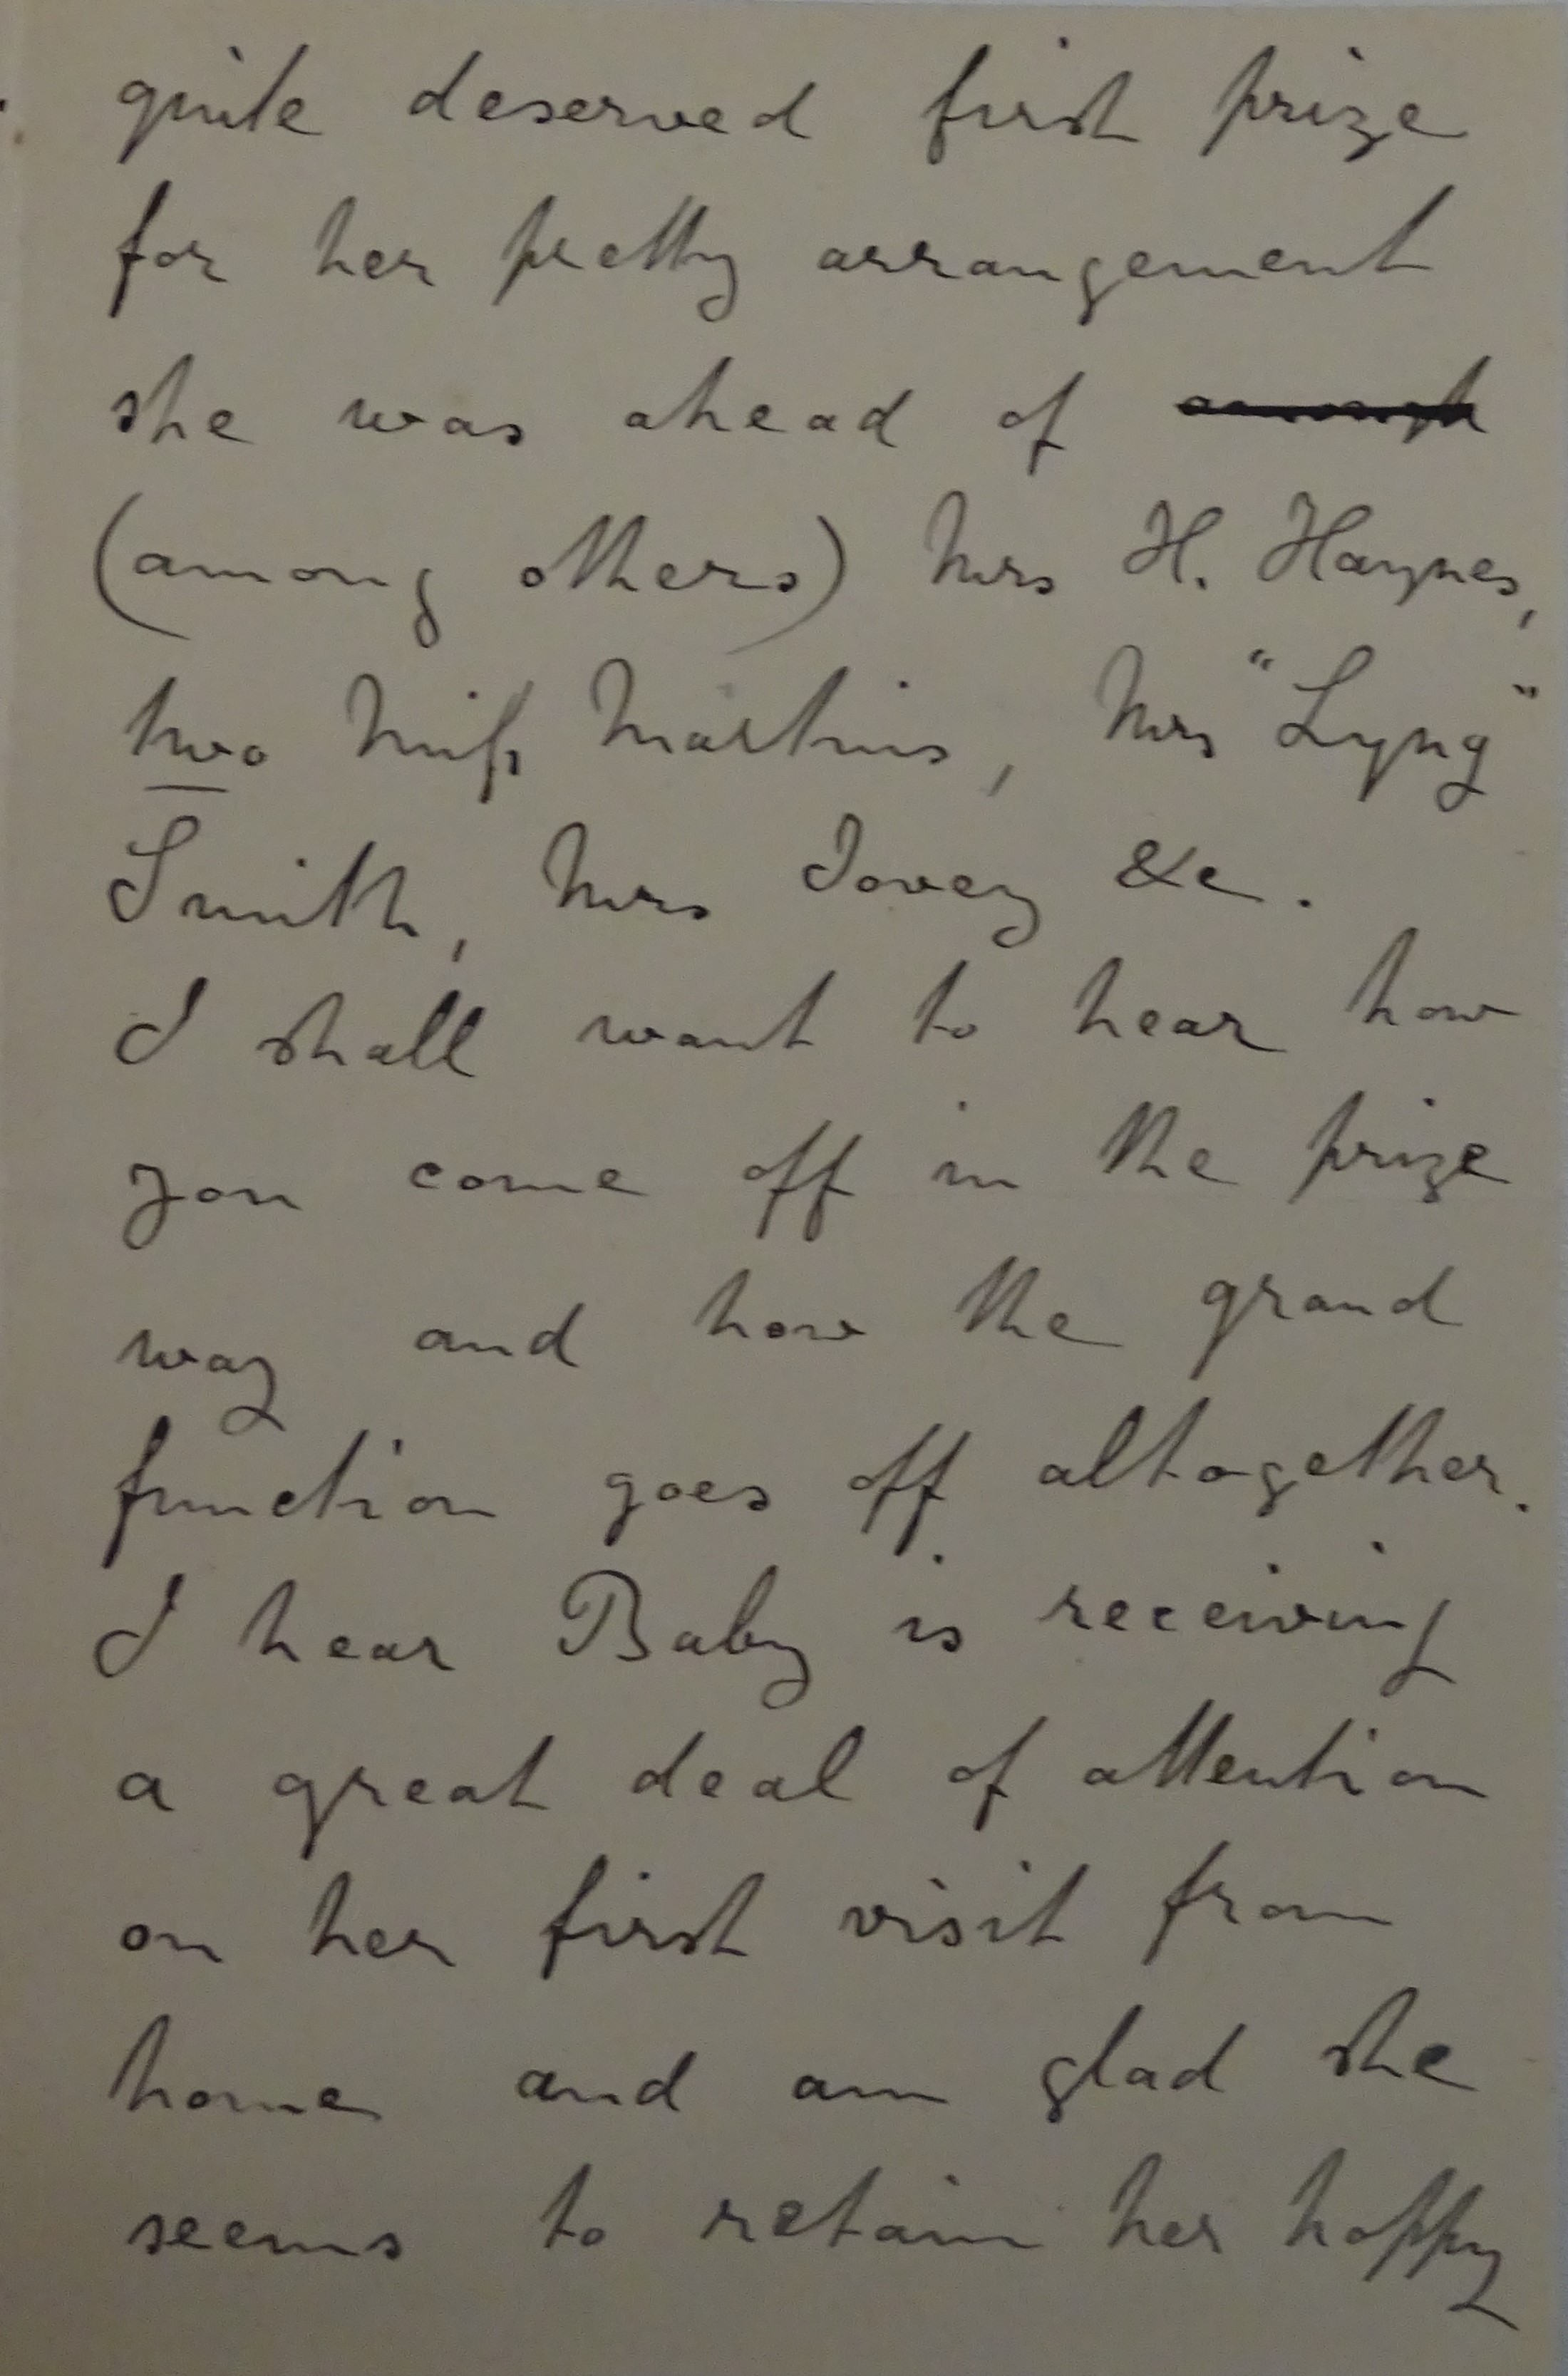 quite deserved first prize
for her pretty arrangement
she was ahead of
(among others) Mrs H. Haynes,
two Miss Martins, Mrs "Lyng"
Smith, Mrs Tovey &c.
I shall want to hear how
you come off in the prize
way and how the grand
function goes off altogether.
I hear Baby is receiving
a great deal of attention
on her first visit from
home and am glad she
seems to retain her happy